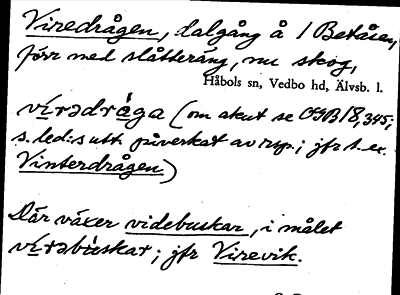 Viredrågen, dalgång å 1 Betåsen,
förr med slåtteräng, nu skog,
Håbols sn, Vedbo hd, Älvsb. l.
vi̇́rədrǻga (om akut se OGB 18, 345;
s. led:s utt. påverkat av resp.; jfr t. ex.
Vinterdrågen)
Där växer videbuskar, i målet
vi̇́rəbùskar; jfr Virevik.